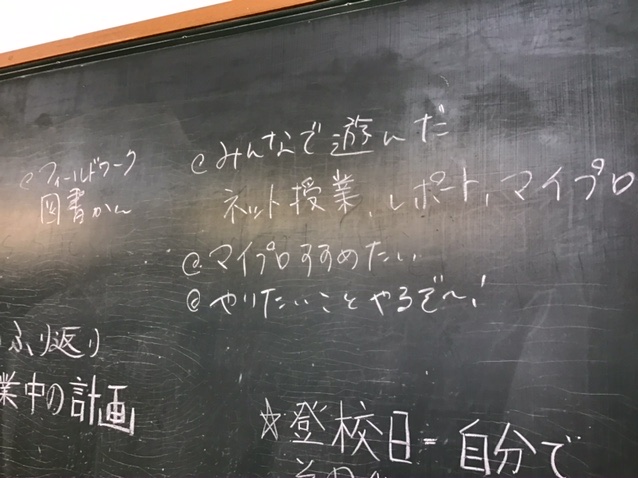 @フィールドワーク
図書かん
@みんなで遊んだ
ネット授業、レポート、マイプロ
@マイプロすすめたい
@やりたいことやるぞ〜!
ふり返り
業中の計画
☆登校日=自分で